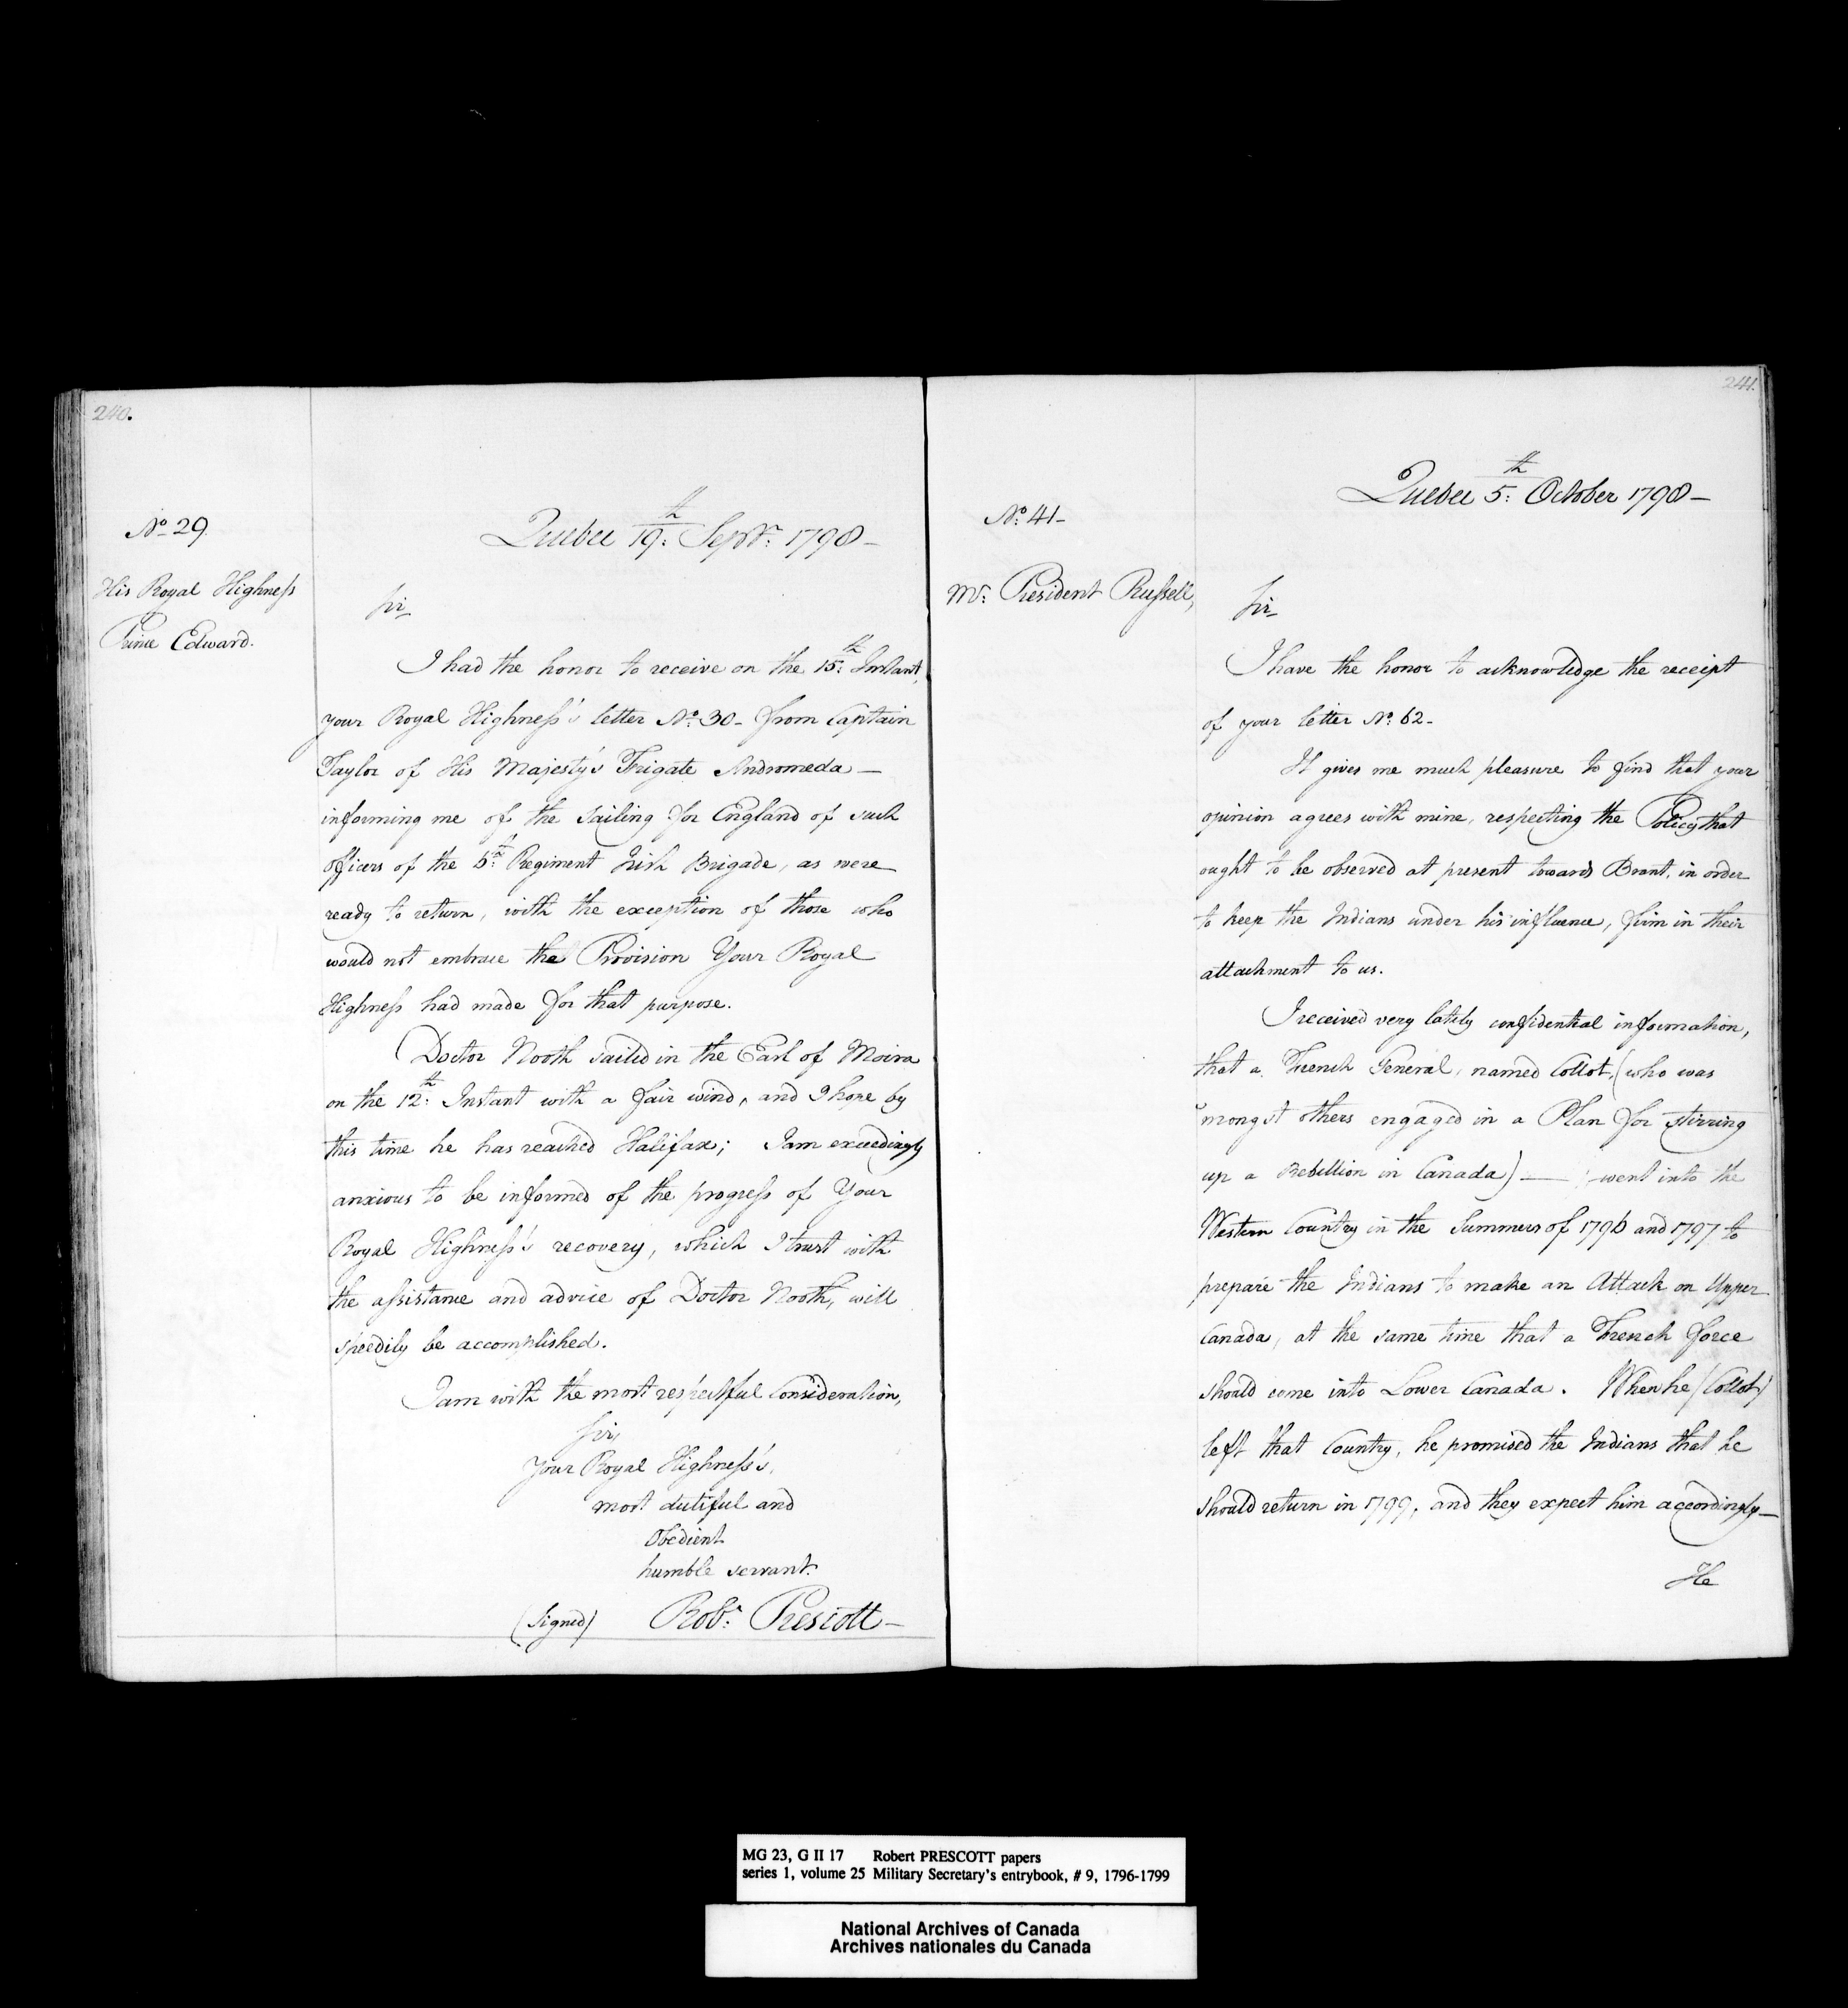 240.
No. 29.
His Royal Highness
Prince Edward.
Quebec 19th: Septr: 1798 —
Sir
I had the honor to receive on the 15th: Instant,
your Royal Highness's letter No: 30 - from Captain
Taylor of His Majesty's Frigate Andromeda —
informing me of the sailing for England of such
officers of the 6th: Regiment Irish Brigade, as were
ready to return, with the exception of those who
would not embrace the Provision Your Royal
Highness had made for that purpose.
Doctor Nooth sailed in the Earl of Moira
on the 12th: Instant with a fair wind, and I hope by
this time he has reached Halifax; I am exceedingly
anxious to be informed of the progress of Your
Royal Highness's recovery, which I trust with
the assistance and advice of Doctor Nooth, will
speedily be accomplished.
I am with the most respectful Consideration,
Sir,
Your Royal Highness's,
most dutiful and
Obedient
humble servant.
(Signed) Robt: Prescott —
241.
No: 41 -
Mr: President Russell,
Quebec 5th: October 1798 —
Sir
I have the honor to acknowledge the receipt
of your letter No: 62 -
It gives me much pleasure to find that your
opinion agrees with mine, respecting the Policy that
ought to be observed at present towards Brant, in order
to keep the Indians under his influence, firm in their
attachment to us.
I received very lately confidential information,
that a French General, named Collot, (who was
'mongst others engaged in a Plan for stirring
up a Rebellion in Canada) — went into the
Western Country in the Summers of 1796 and 1797 to
prepare the Indians to make an Attack on Upper
Canada, at the same time that a French force
should come into Lower Canada. When he (Collot)
left that Country, he promised the Indians that he
should return in 1799, and they expect him accordingly —
He
MG 23, G II 17 Robert PRESCOTT papers
series 1, volume 25 Military Secretary's entrybook, # 9, 1796-1799
National Archives of Canada
Archives nationales du Canada